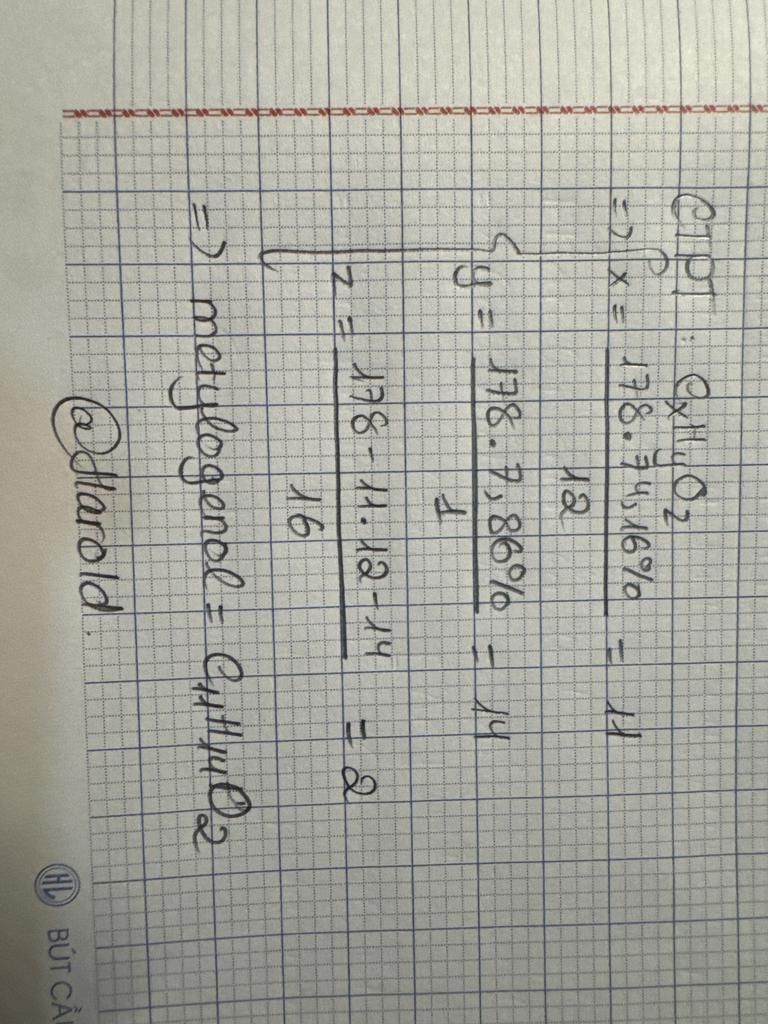 CTPT : CxHyOz
=> x = 178.74,16% / 12 = 11
y = 178.7,86% / 1 = 14
z = 178-11.12-14 / 16 = 2
=> metylogenol = C11H14O2
@Harold.
HL BÚT CẦ